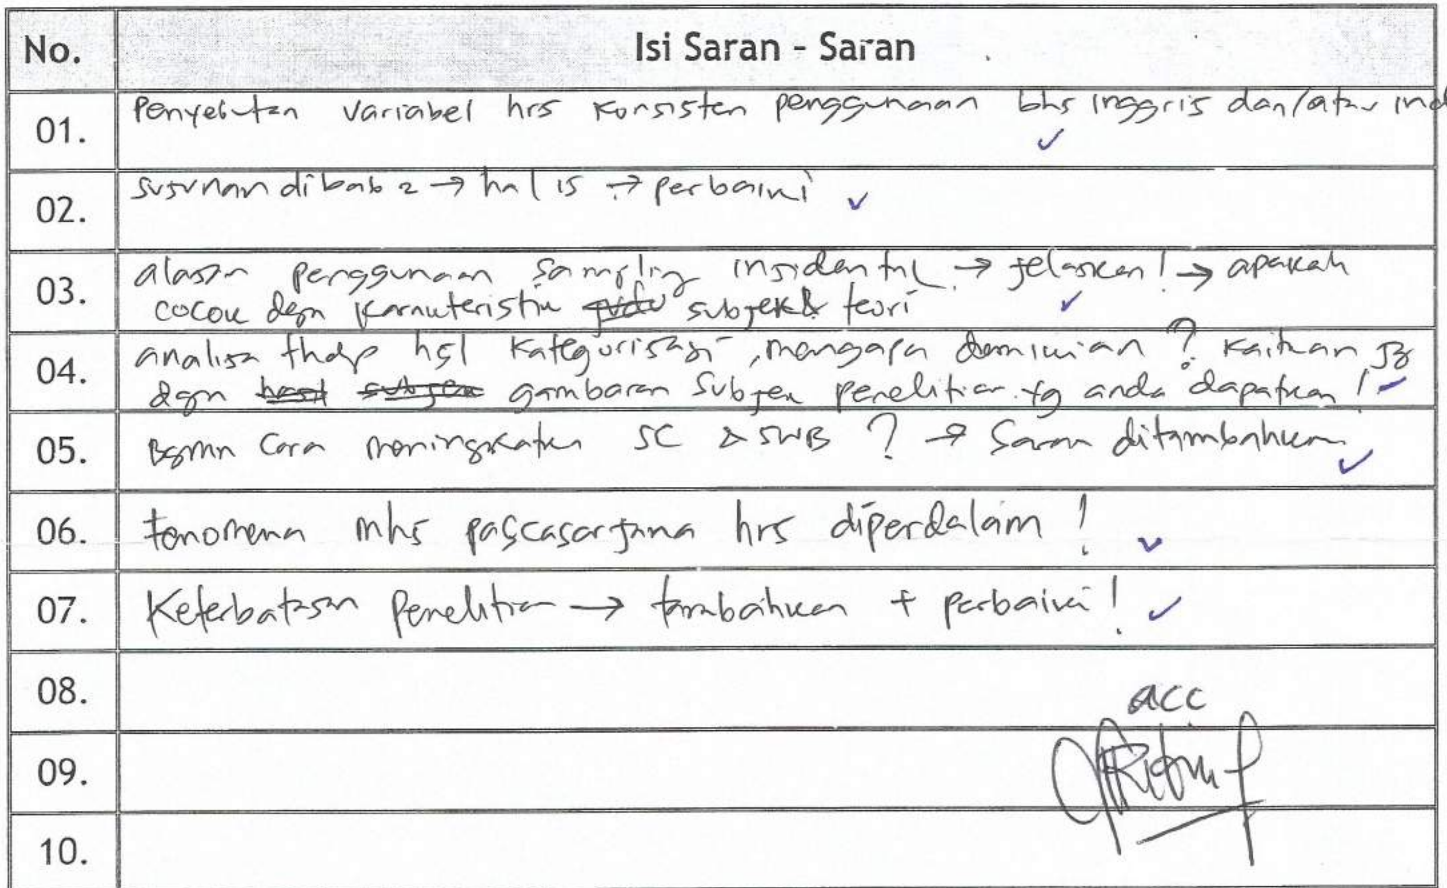 No. Isi Saran - Saran
01. Penyebutan variabel hrs konsisten penggunaan bhs inggris dan/atau ind
02. susunan di bab 2 → hal 15 → perbaiki
03. alasan penggunaan sampling insidental → jelaskan! → apakah
cocok dgn karakteristik subjek & teori
04. analisa thdp hsl kategorisasi, mengapa demikian? kaitkan
dgn gambaran subjek penelitian yg anda dapatkan!
05. Bgmn cara meningkatkan SC & SWB? → Saran ditambahkan
06. fenomena mhs pascasarjana hrs diperdalam!
07. Keterbatasan Penelitian → tambahkan + perbaiki!
08.
acc
09.
10.